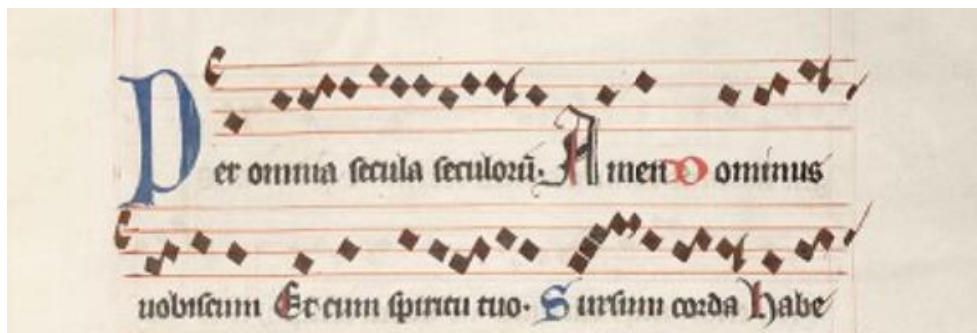 Per omnia secula seculorū. Amen Dominus
uobiscum Et cum spiritu tuo. Sursum corda Habe